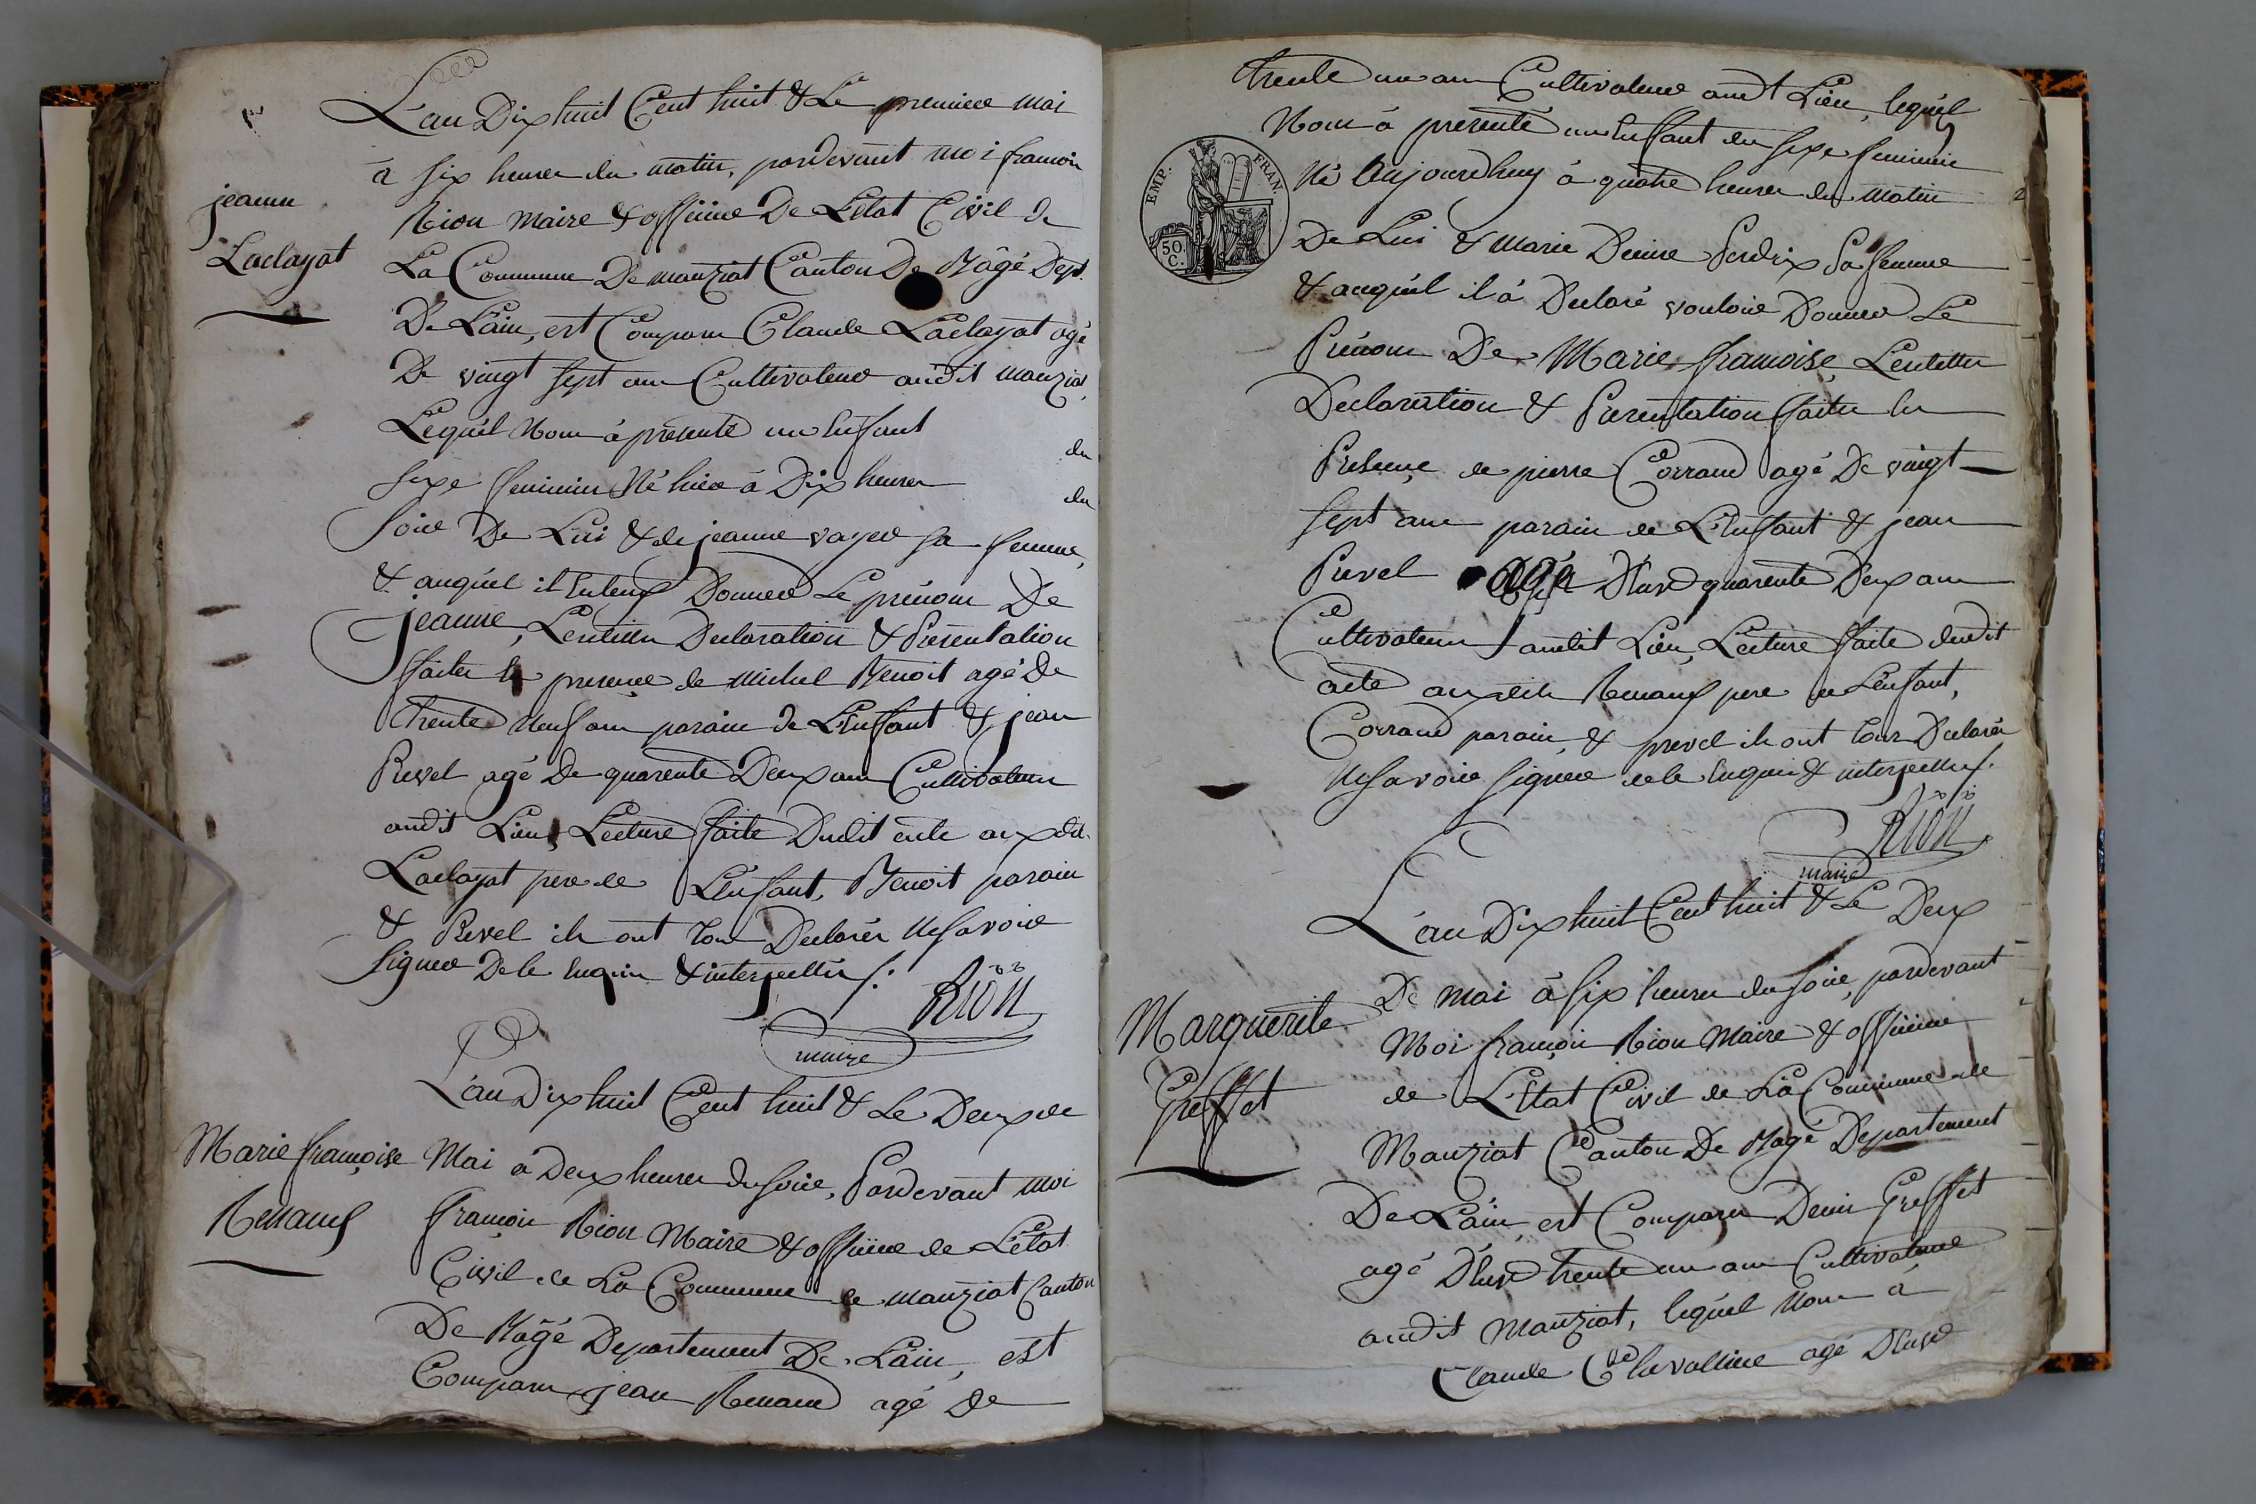 L'an Dix huit Cent huit & Le premier mai
à six heures du matin, pardevant moi francois
Rion maire & officier De L'état Civil de
La Commune De manziat Canton De Bâgé Dept.
De L'ain, est Comparu Claude Laclayat agé
De vingt sept ans Cultivateur audit manziat,
Lequel Nous à présenté un Enfant du
sexe feminin Né hier à Dix heures du
soir De Lui & de jeanne vayer sa femme,
& auquel il Entend Donner Le prénom De
jeanne, Lesdittes Declaration & Présentation
faites En présence de michel Benoit agé De
trente Neuf ans parain de L'Enfant & jean
Revel agé De quarente Deux ans Cultivateurs
audit Lieu, Lecture faite Dudit acte aux dit
Laclayat pere de L'enfant, Benoit parain
& Revel ils ont tous Declarér Ne Savoir
signer De ce Enquis & interpellés /.
Rion
maire
jeanne
Laclayat
L'an Dix huit Cent huit & Le Deux de
Mai à Deux heures du soir, Pardevant moi
francois Rion Maire & officier de L'état
Civil de La Commune de manziat Canton
De Bâgé Departement De L'ain, est
Comparu jean Renaud agé De
Marie françoise
Renaud
trente un ans Cultivateur audt Lieu, lequel
Nous à présenté un Enfant du sexe feminin
Né Aujourdhuy à quatre heures du matin
De Lui & marie Denise Perdrix Sa femme
& auquel il à Declaré vouloir Donner Le
Prénom De Marie françoise, Lesdittes
Declaration & Présentation faites En
Présence de pierre Corrand agé De vingt
sept ans parain de L'Enfant & jean
Revel agé D'Env quarente Deux ans
Cultivateurs audit Lieu, Lecture faite dudit
acte auxdits Renaud pere de L'enfant,
Corrand parain & prevel ils ont tous Declarér
Ne Savoir signer de ce Enquis & interpellés /.
Rion
maire
EMP. FRAN.
50 C.
L'an Dix huit Cent huit & Le Deux
De mai à six heures du soir, pardevant
Moi françois Rion Maire & officier
de L'Etat Civil de La Commune de
Manziat Canton De Bâgé Departement
De L'ain, est Comparu Denis Greffet
agé D'Env trente un ans Cultivateur
audit Manziat, lequel Nous à
Claude Chevallier agé D'Env
Marguerite
Greffet